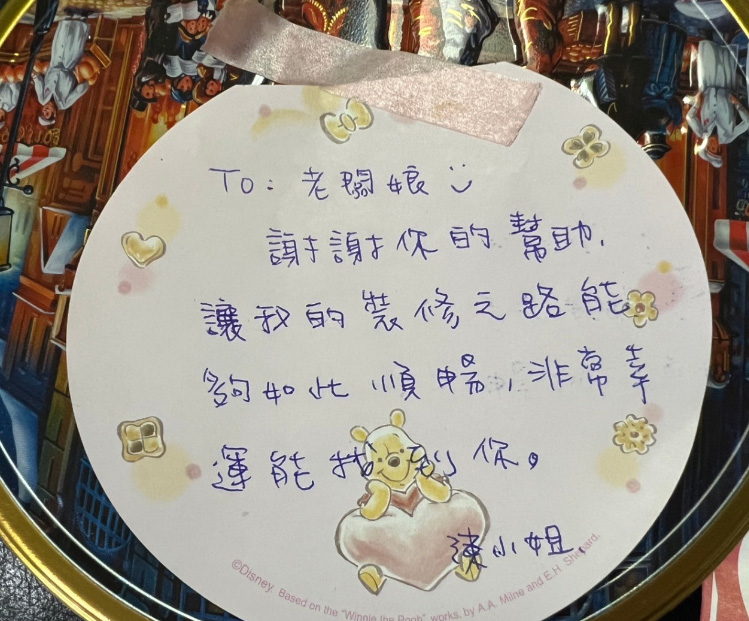 TO: 老闆娘
謝謝你的幫助,
讓我的裝修之路能
夠如此順暢,非常幸
運能找到你。
陳小姐.
©Disney. Based on the "Winnie the Pooh" works, by A.A. Milne and E.H. Shepard.